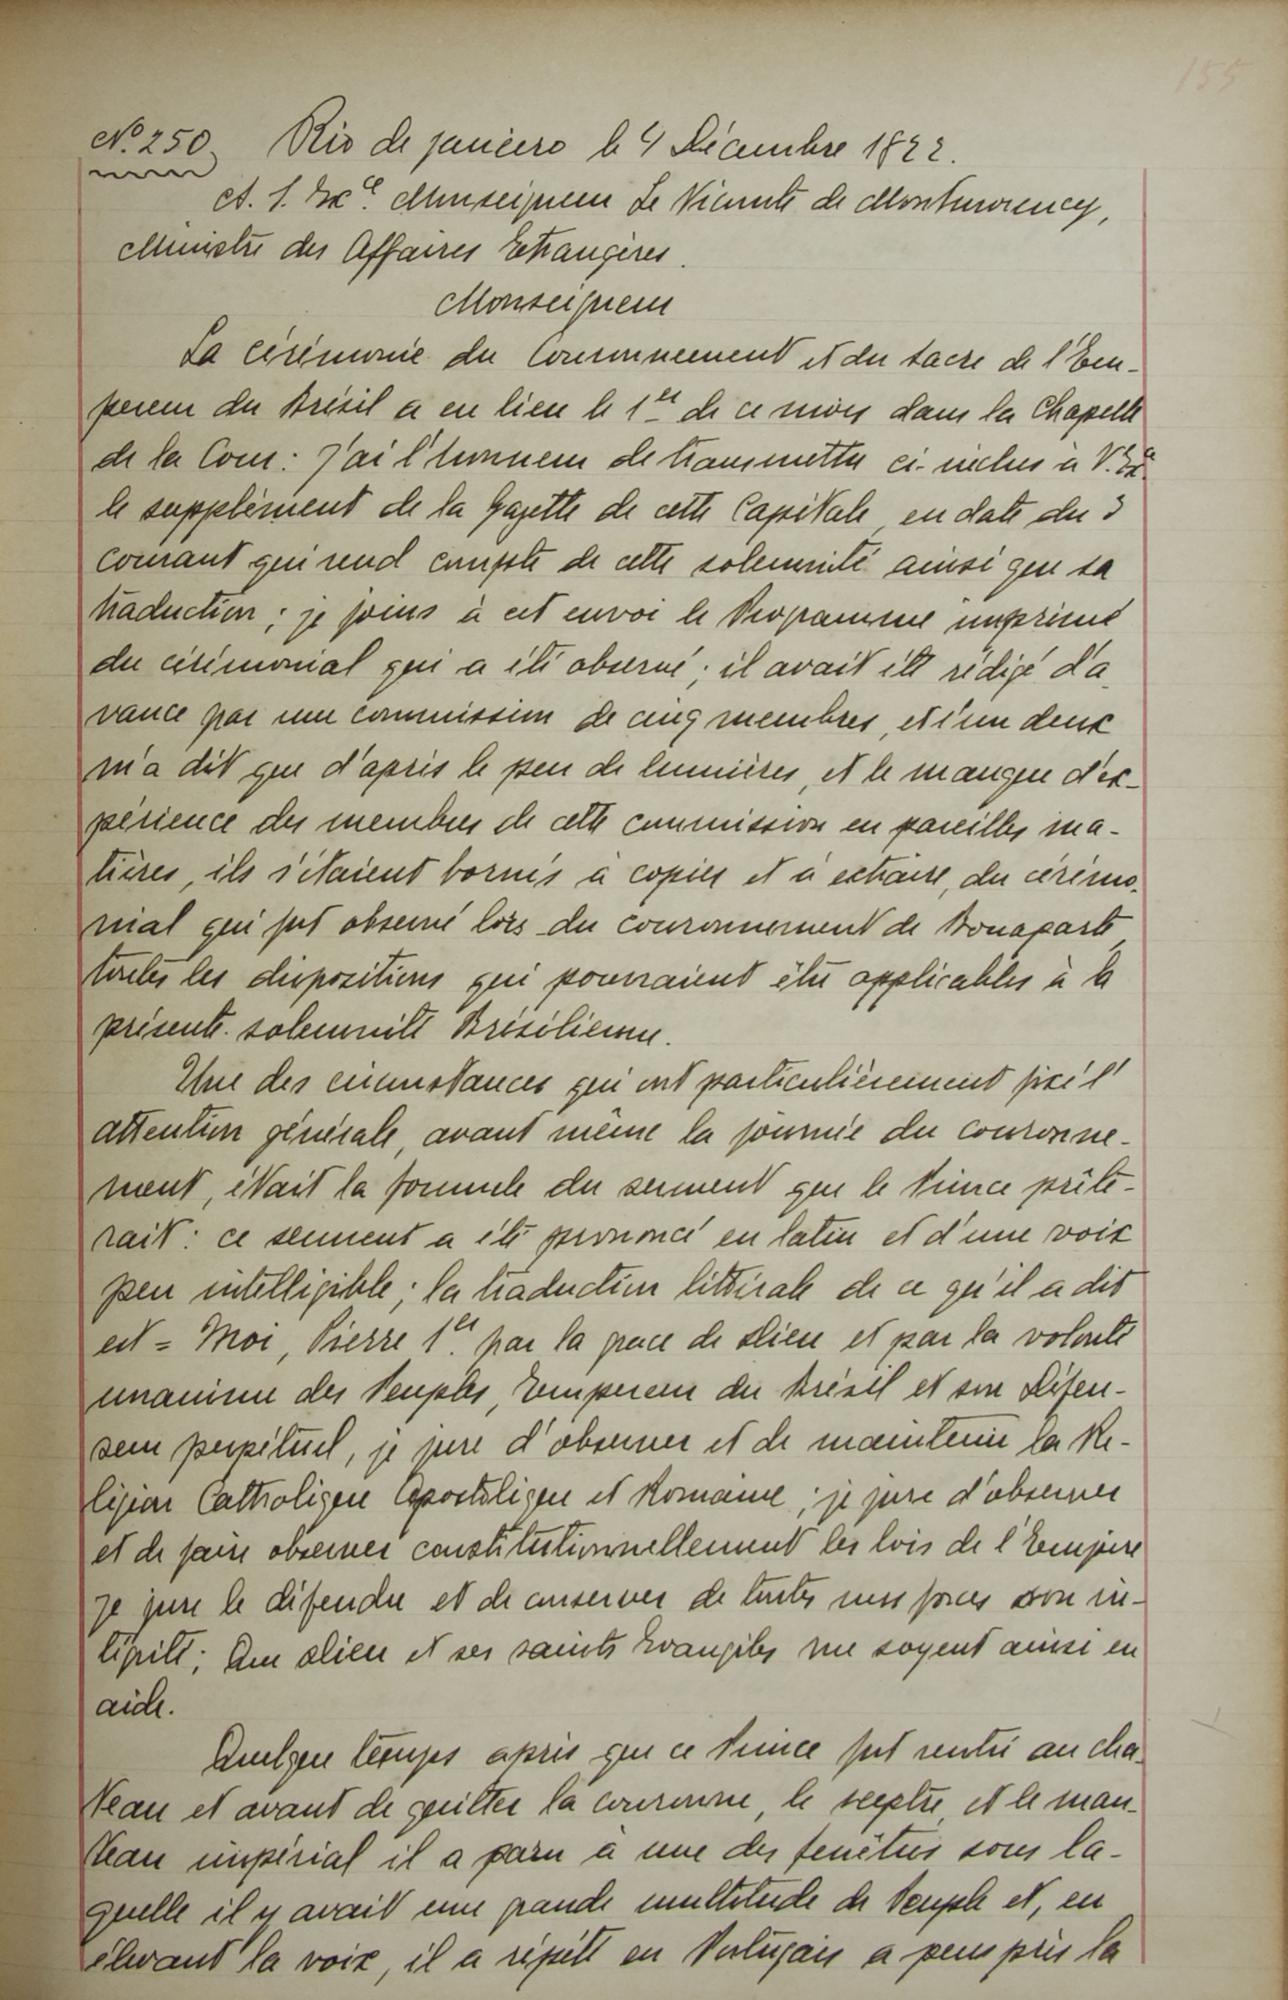 155
Nº 250. Rio de janeiro le 4 Décembre 1822.
A. S. Exce. Monseigneur Le Vicomte de Montmorency,
Ministre des Affaires Etrangères.
Monseigneur
La cérémonie du Couronnement et du sacre de l'Em-
pereur du Brésil a eu lieu le 1er de ce mois dans la Chapelle
de la Cour: j'ai l'honneur de transmettre ci-inclus à V. Exa.
le supplément de la Gazette de cette Capitale, en date du 3
courant qui rend compte de cette solemnité ainsi que sa
traduction; je joins à cet envoi le Programme imprimé
du cérémonial qui a été observé; il avait été rédigé d'a
vance par une commission de cinq membres, et l'un deux
m'a dit que d'après le peu de lumières, et le manque d'ex-
périence des membres de cette commission en pareilles ma-
tières, ils s'étaient bornés à copier et à extraire, du cérémo-
nial qui fut observé lors du couronnement de Bonaparte,
toutes les dispositions qui pourraient être applicables à la
présente solemnité Brésilienne.
Une des circonstances qui ont particulièrement fixé l'
attention générale, avant même la journée du couronne-
ment, était la formule du serment que le Prince prête-
rait: ce serment a été prononcé en latin et d'une voix
peu intelligible; la traduction littérale de ce qu'il a dit
est = Moi, Pierre 1er. par la grace de Dieu et par la volonté
unanime des Peuples, Empereur du Brésil et son Défen-
seur perpétuel, je jure d'observer et de maintenir la Re-
ligion Catholique Apostolique et Romaine; je jure d'observer
et de faire observer constitutionnellement les lois de l'Empire
je jure le défendre et de conserver de toutes mes forces son in-
tégrité; Que Dieu et ses saints Evangiles me soyent ainsi en
aide.
Quelque temps après que ce Prince fut rentré au cha-
teau et avant de quitter la couronne, le sceptre et le man-
teau impérial il a paru à une des fenêtres sous la-
quelle il y avait une grande multitude de Peuple et, en
élevant la voix, il a répété en Portugais a peus près la